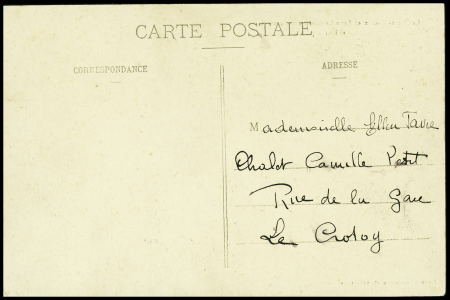 CARTE POSTALE
CORRESPONDANCE
ADRESSE
Mademoiselle
Chalet Camille Petit
Rue de la Gare
Le Crotoy